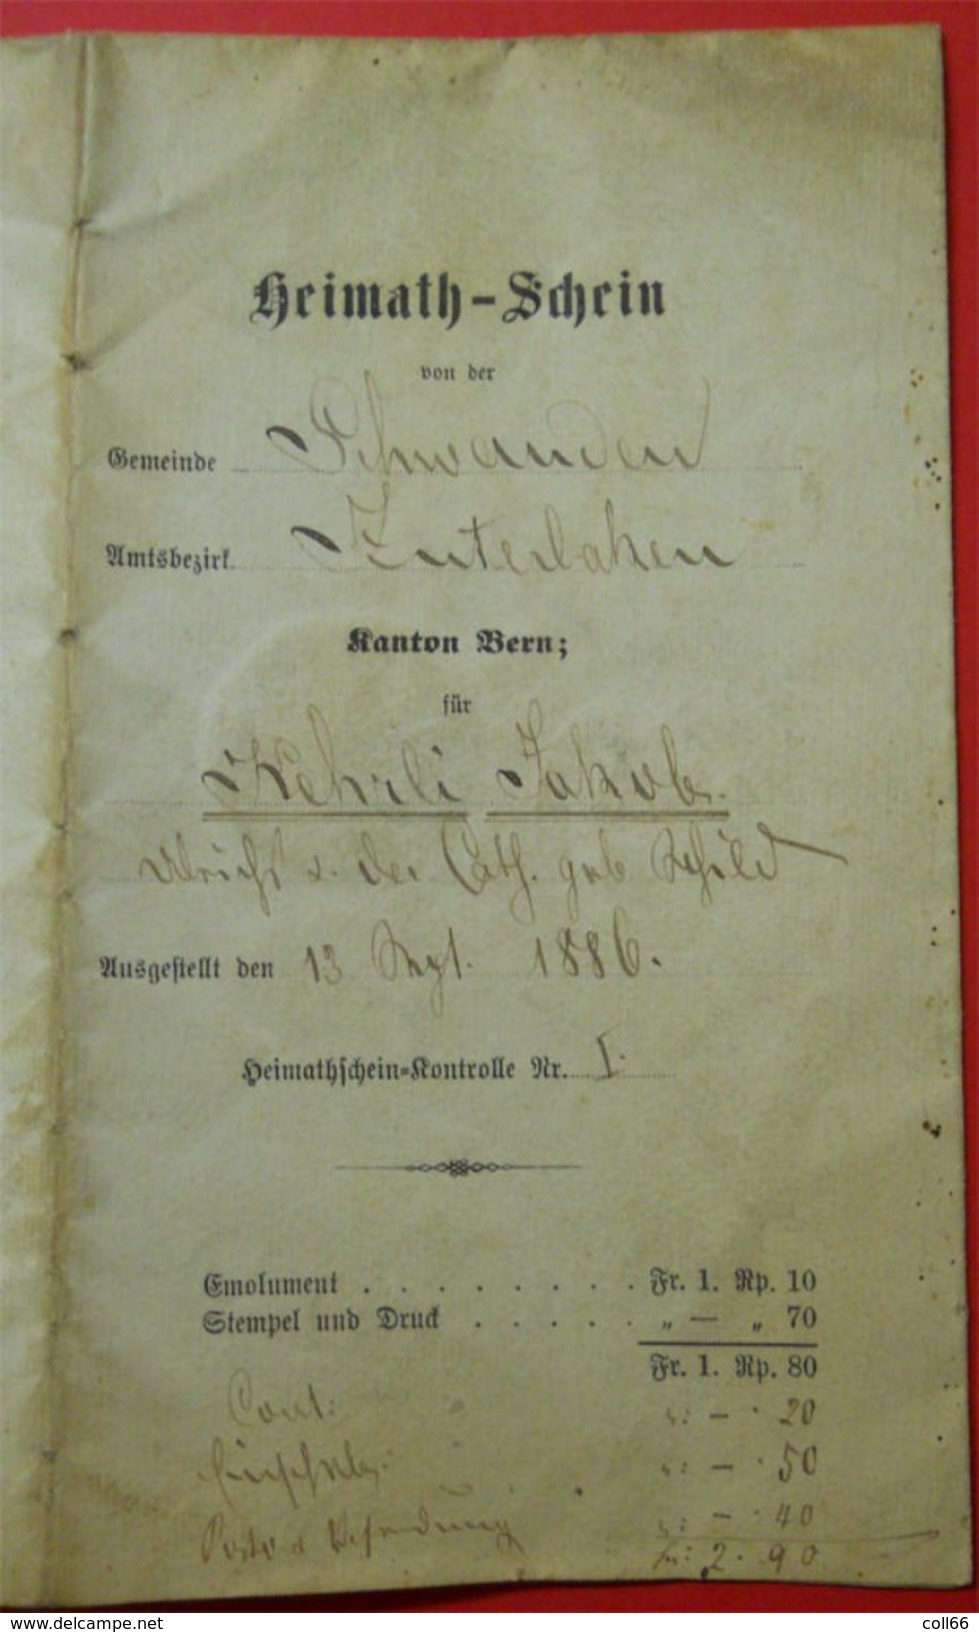 Heimath-Schein
von der
Gemeinde Schwanden
Amtsbezirk Interlaken
Kanton Bern;
für
Kehrli Jakob.
Ulrichs u. der Cath. geb Schild
Ausgestellt den 13 Sept. 1886.
Heimathschein-Kontrolle Nr. I.
Emolument . . . . . . . . Fr. 1. Rp. 10
Stempel und Druck . . . . . „ — „ 70
Fr. 1. Rp. 80
Cont: „: — · 20
Einschrb. „: — · 50
Porto & Versendung „: — · 40
Fr: 2. 90
www.delcampe.net
coll66